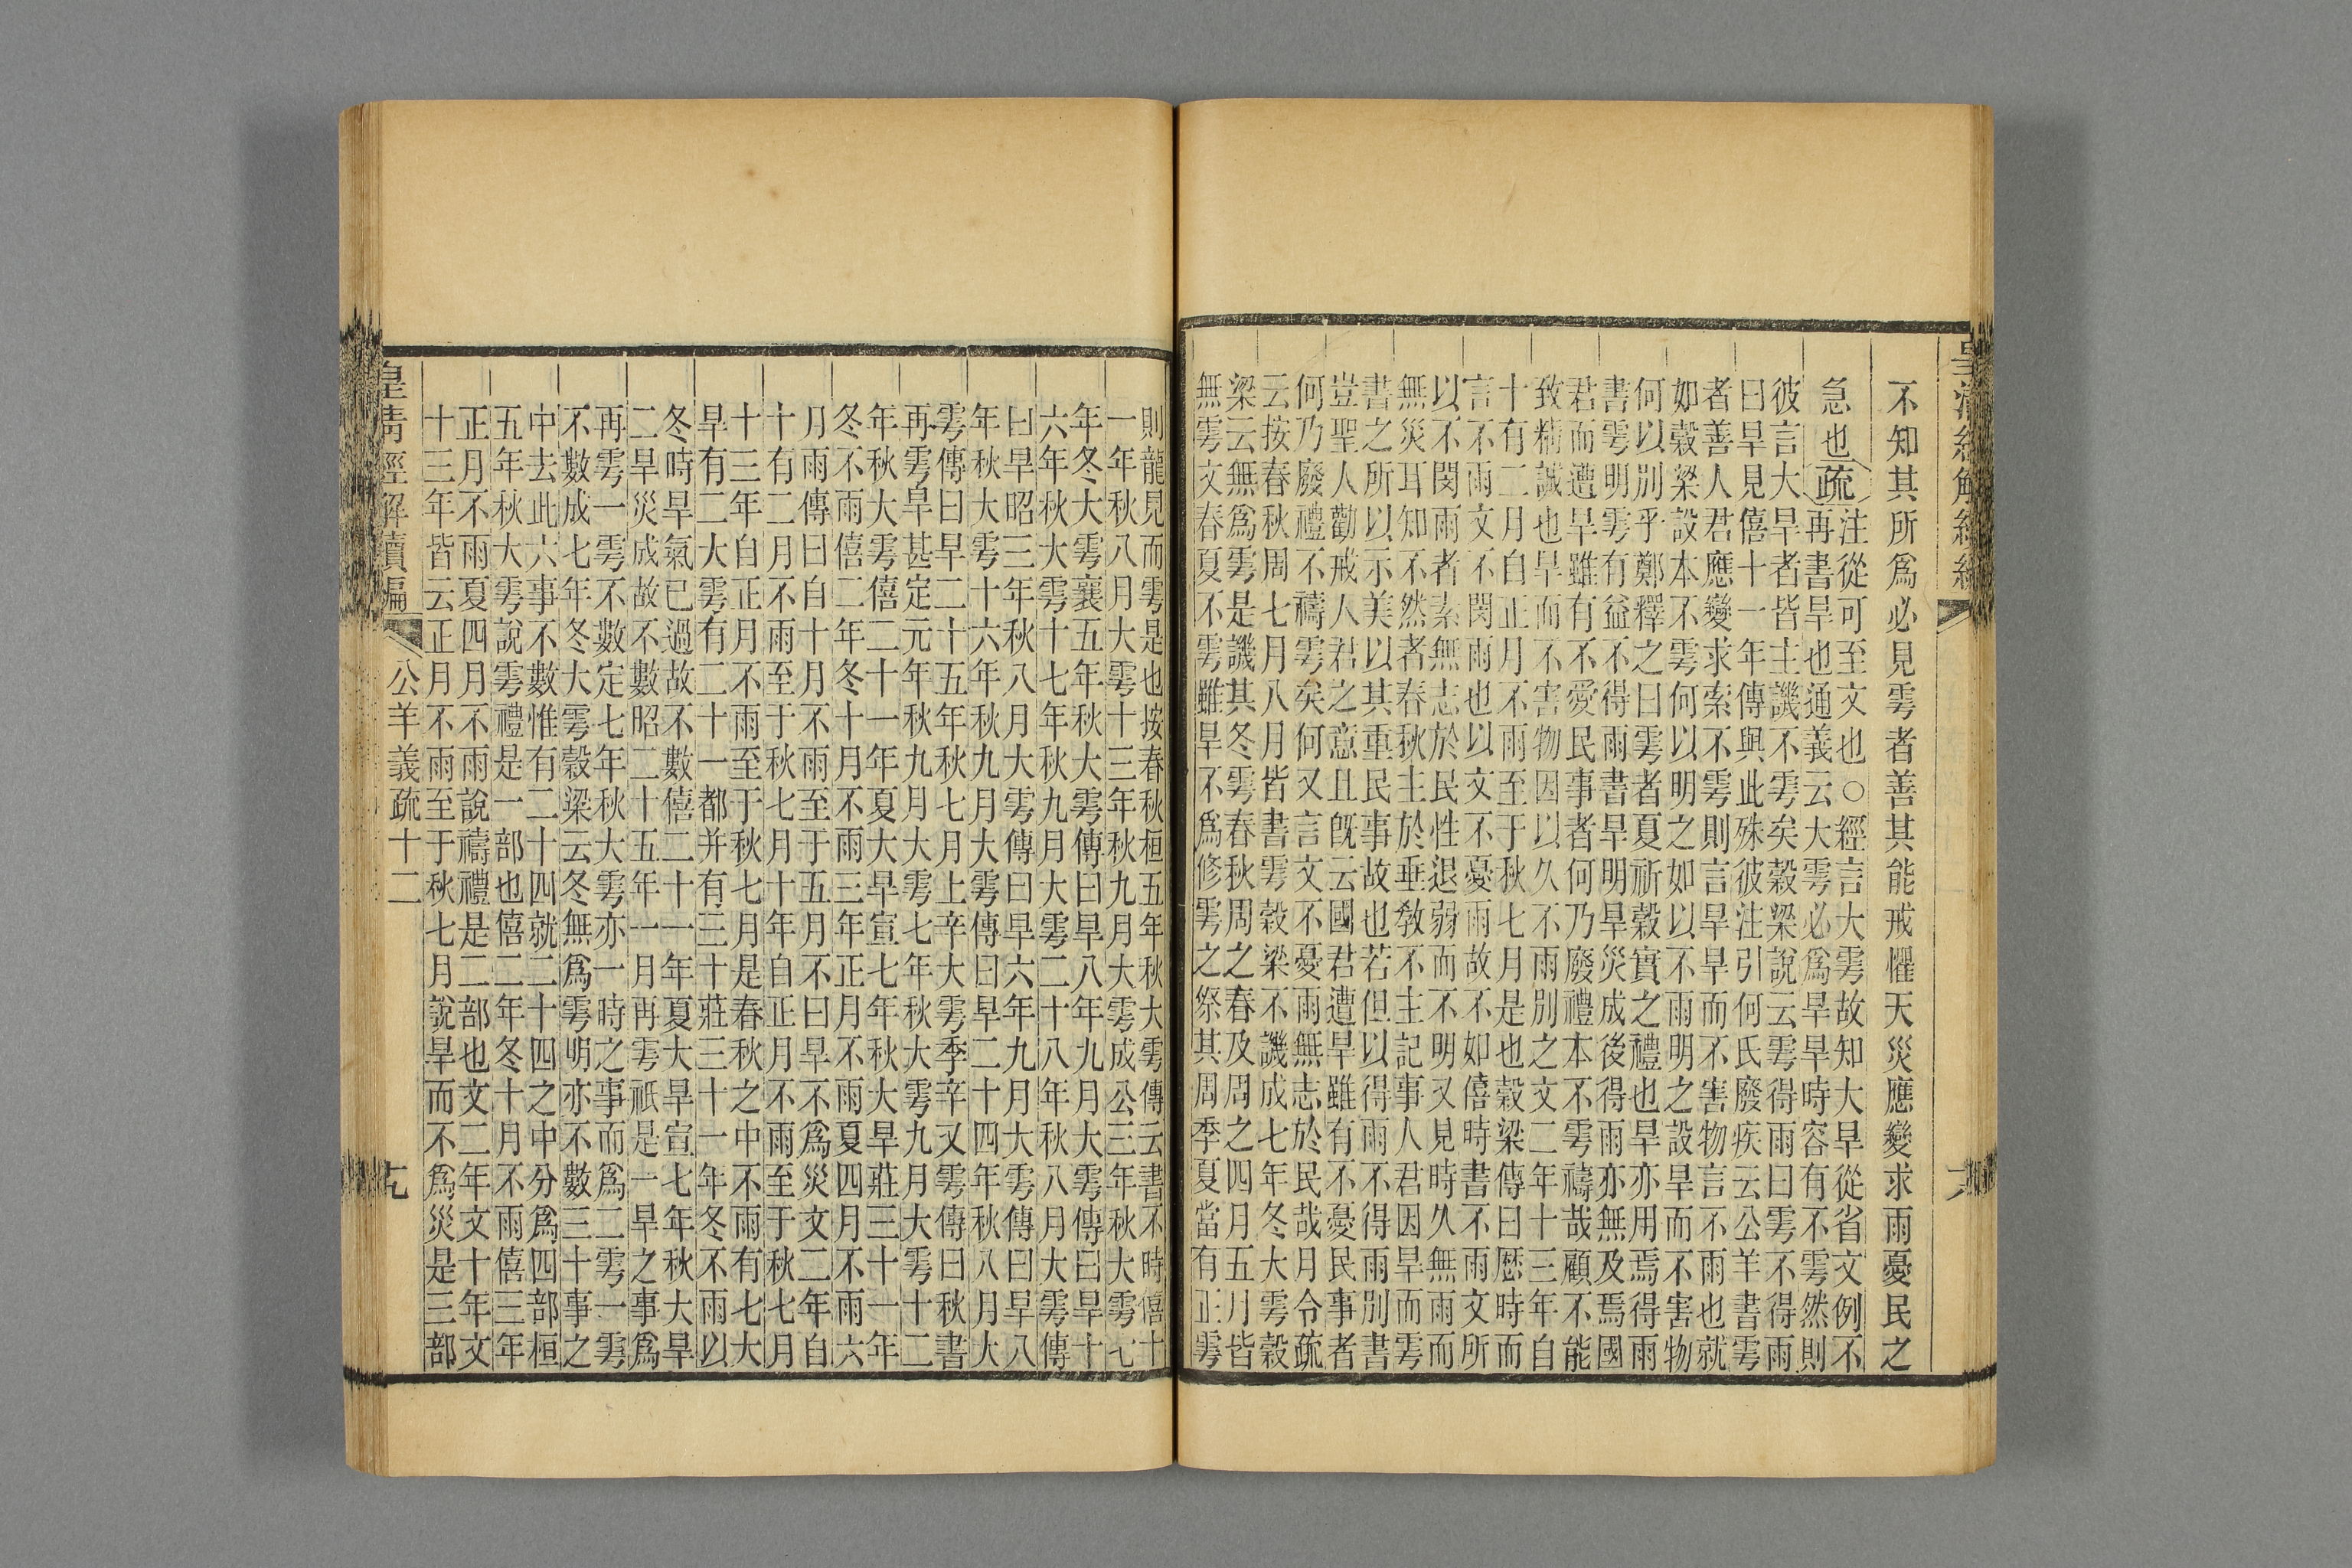 不知其所爲必見雩者善其能戒懼天災應變求雨憂民之
急也
疏
注從可至文也○經言大雩故知大旱從省文例不
再書旱也通義云大雩必爲旱時容有不雩然則
彼言大旱者皆主譏不雩矣穀梁說云雩得雨曰雩不得雨
曰旱見僖十一年傳與此殊彼注引何氏廢疾云公羊書雩
者善人君應變求索不雩則言旱旱而不害物言不雨也就
如穀梁設本不雩何以明之如以不雨明之設旱而不害物
何以別乎鄭釋之曰雩者夏祈穀實之禮也旱亦用焉得雨
書雩明雩有益不得雨書旱明旱災成後得雨亦無及焉國
君而遭旱雖有不愛民事者何乃廢禮本不雩禱哉顧不能
致精誠也旱而不害物因以久不雨別之文二年十三年自
十有二月自正月不雨至于秋七月是也穀梁傳曰歷時而
言不雨文不閔雨也以文不憂雨故不如僖時書不雨文所
以不閔雨者素無志於民性退弱而不明又見時久無雨而
無災耳知不然者春秋主於垂教不主記事人君因旱而雩
書之所以示美以其重民事故也若但以得雨不得雨別書
豈聖人勸戒人君之意且旣云國君遭旱雖有不憂民事者
何乃廢禮不禱雩矣何又言文不憂雨無志於民哉月令疏
云按春秋周七月八月皆書雩穀梁不譏成七年冬大雩穀
梁云無爲雩是譏其冬雩春秋周之春及周之四月五月皆
無雩文春夏不雩雖旱不爲修雩之祭其周季夏當有正雩
則龍見而雩是也按春秋桓五年秋大雩傳云書不時僖十
一年秋八月大雩十三年秋九月大雩成公三年秋大雩七
年冬大雩襄五年秋大雩傳曰旱八年九月大雩傳曰旱十
六年秋大雩十七年秋九月大雩二十八年秋八月大雩傳
曰旱昭三年秋八月大雩傳曰旱六年九月大雩傳曰旱八
年秋大雩十六年秋九月大雩傳曰旱二十四年秋八月大
雩傳曰旱二十五年秋七月上辛大雩季辛又雩傳曰秋書
再雩旱甚定元年秋九月大雩七年秋大雩九月大雩十二
年秋大雩僖二十一年夏大旱宣七年秋大旱莊三十一年
冬不雨僖二年冬十月不雨三年正月不雨夏四月不雨六
月雨傳曰自十月不雨至于五月不曰旱不爲災文二年自
十有二月不雨至于秋七月十年自正月不雨至于秋七月
十三年自正月不雨至于秋七月是春秋之中不雨有七大
旱有二大雩有二十一都并有三十莊三十一年冬不雨以
冬時旱氣已過故不數僖二十一年夏大旱宣七年秋大旱
二旱災成故不數昭二十五年一月再雩祇是一旱之事爲
再雩一雩不數定七年秋大雩亦一時之事而爲二雩一雩
不數成七年冬大雩穀梁云冬無爲雩明亦不數三十事之
中去此六事不數惟有二十四就二十四之中分爲四部桓
五年秋大雩說雩禮是一部也僖二年冬十月不雨僖三年
正月不雨夏四月不雨說禱禮是二部也文二年文十年文
十三年皆云正月不雨至于秋七月說旱而不爲災是三部
皇清經解續編
公羊義疏十二